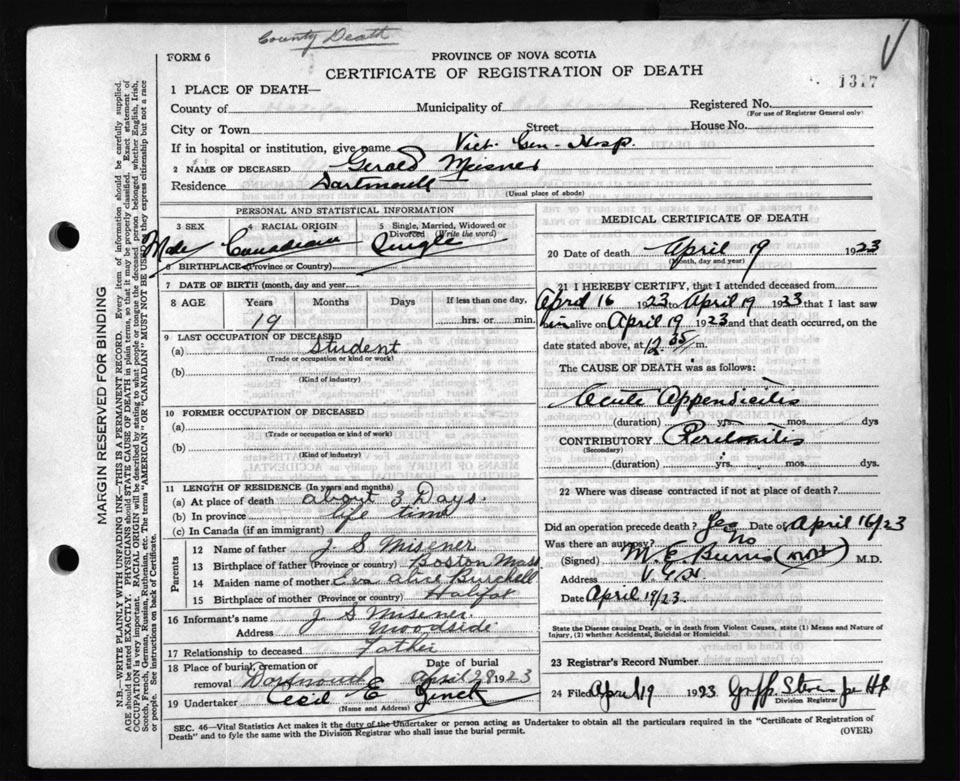 County Death
FORM 6
PROVINCE OF NOVA SCOTIA
CERTIFICATE OF REGISTRATION OF DEATH
1317
1 PLACE OF DEATH—
County of Municipality of Registered No.
(For use of Registrar General only)
City or Town Street House No.
If in hospital or institution, give name Vict. Gen. Hosp.
2 NAME OF DECEASED Gerald Meisner
Residence Dartmouth
(Usual place of abode)
PERSONAL AND STATISTICAL INFORMATION
3 SEX 4 RACIAL ORIGIN 5 Single, Married, Widowed or Divorced (Write the word)
Male Canadian Single
6 BIRTHPLACE (Province or Country)
7 DATE OF BIRTH (month, day and year)
8 AGE Years Months Days If less than one day,
19 hrs. or min.
9 LAST OCCUPATION OF DECEASED
(a) Student
(Trade or occupation or kind of work)
(b)
(Kind of industry)
10 FORMER OCCUPATION OF DECEASED
(a)
(Trade or occupation or kind of work)
(b)
(Kind of industry)
11 LENGTH OF RESIDENCE (In years and months)
(a) At place of death about 3 Days.
(b) In province life time
(c) In Canada (if an immigrant)
Parents
12 Name of father J S Misener
13 Birthplace of father (Province or country) Boston Mass
14 Maiden name of mother Eva Alice Burchell
15 Birthplace of mother (Province or country) Halifax
16 Informant's name J S Misener
Address Woodside
17 Relationship to deceased Father
18 Place of burial, cremation or removal Dartmouth Date of burial April 28 1923
19 Undertaker Cecil E Zinck
(Name and Address)
MEDICAL CERTIFICATE OF DEATH
20 Date of death April 19 1923
(Month, day and year)
21 I HEREBY CERTIFY, that I attended deceased from
April 16 1923 to April 19 1923 that I last saw
him alive on April 19 1923 and that death occurred, on
date stated above, at 12.35 m.
The CAUSE OF DEATH was as follows:
Acute Appendicitis
(duration) yrs. mos. dys
CONTRIBUTORY Peritonitis
(Secondary)
(duration) yrs. mos. dys.
22 Where was disease contracted if not at place of death?
Did an operation precede death? Yes Date of April 16/23
Was there an autopsy? No
(Signed) M. E. Burns M.D.
Address V.G.H.
Date April 19/23
State the Disease causing Death, or in death from Violent Causes, state (1) Means and Nature of Injury, (2) whether Accidental, Suicidal or Homicidal.
23 Registrar's Record Number
24 Filed April 19 1923
Division Registrar
SEC. 46—Vital Statistics Act makes it the duty of the Undertaker or person acting as Undertaker to obtain all the particulars required in the "Certificate of Registration of
Death" and to fyle the same with the Division Registrar who shall issue the burial permit. (OVER)
MARGIN RESERVED FOR BINDING
N.B.—WRITE PLAINLY WITH UNFADING INK—THIS IS A PERMANENT RECORD. Every item of information should be carefully supplied.
AGE should be stated EXACTLY. PHYSICIANS should STATE CAUSE OF DEATH in plain terms, so that it may be properly classified. Exact statement of
OCCUPATION is very important. RACIAL ORIGIN will be described by stating to what people or tongue the deceased person belonged whether English, Irish,
Scotch, French, German, Russian, Ruthenian, etc. The terms "AMERICAN" or "CANADIAN" MUST NOT BE USED as they express citizenship but not a race
or people. See instructions on back of Certificate.